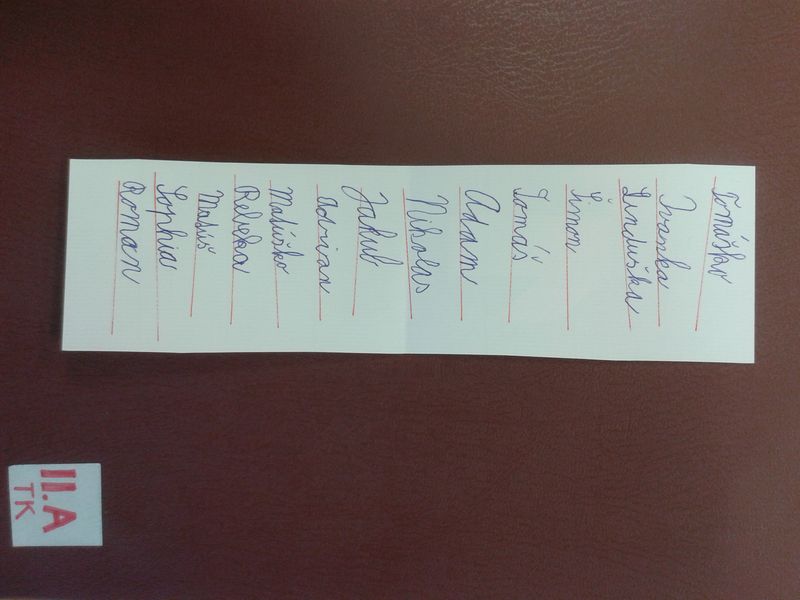 Tomáško
Ivanka
Linduška
Šimon
Tomáš
Adam
Nikolas
Jakub
Adrian
Matúško
Rebeka
Matúš
Sophia
Roman
II.A
TK